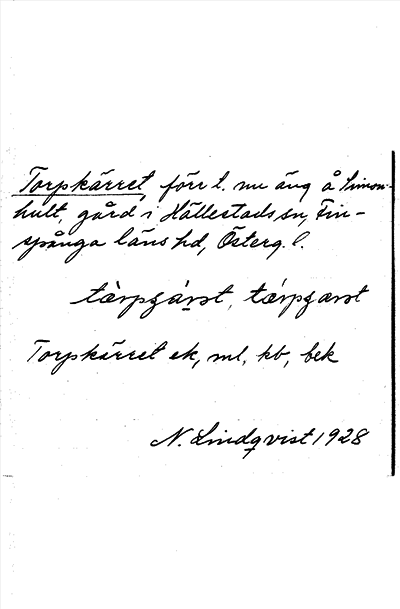 Torpkärret, förr t. nu äng å Simons-
hult, gård i Hällestads sn, Fin-
spånga läns hd, Österg. l.
Torpkärret ek, ml, kb, bek
N. Lindqvist 1928